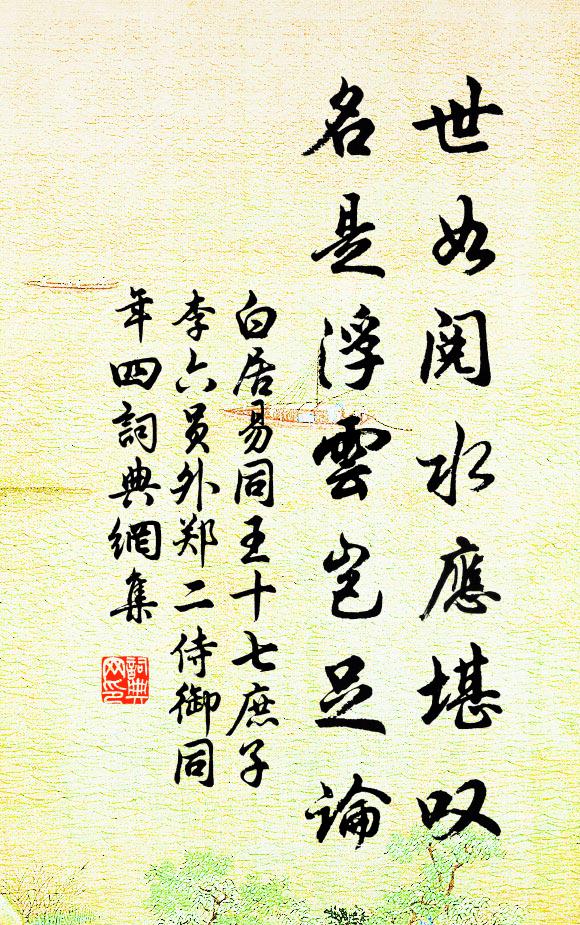 世如阅水應堪叹
名是浮雲岂足論
白居易同王十七庶子
李六员外郑二侍御同
年四詞典網集
詞典
网印